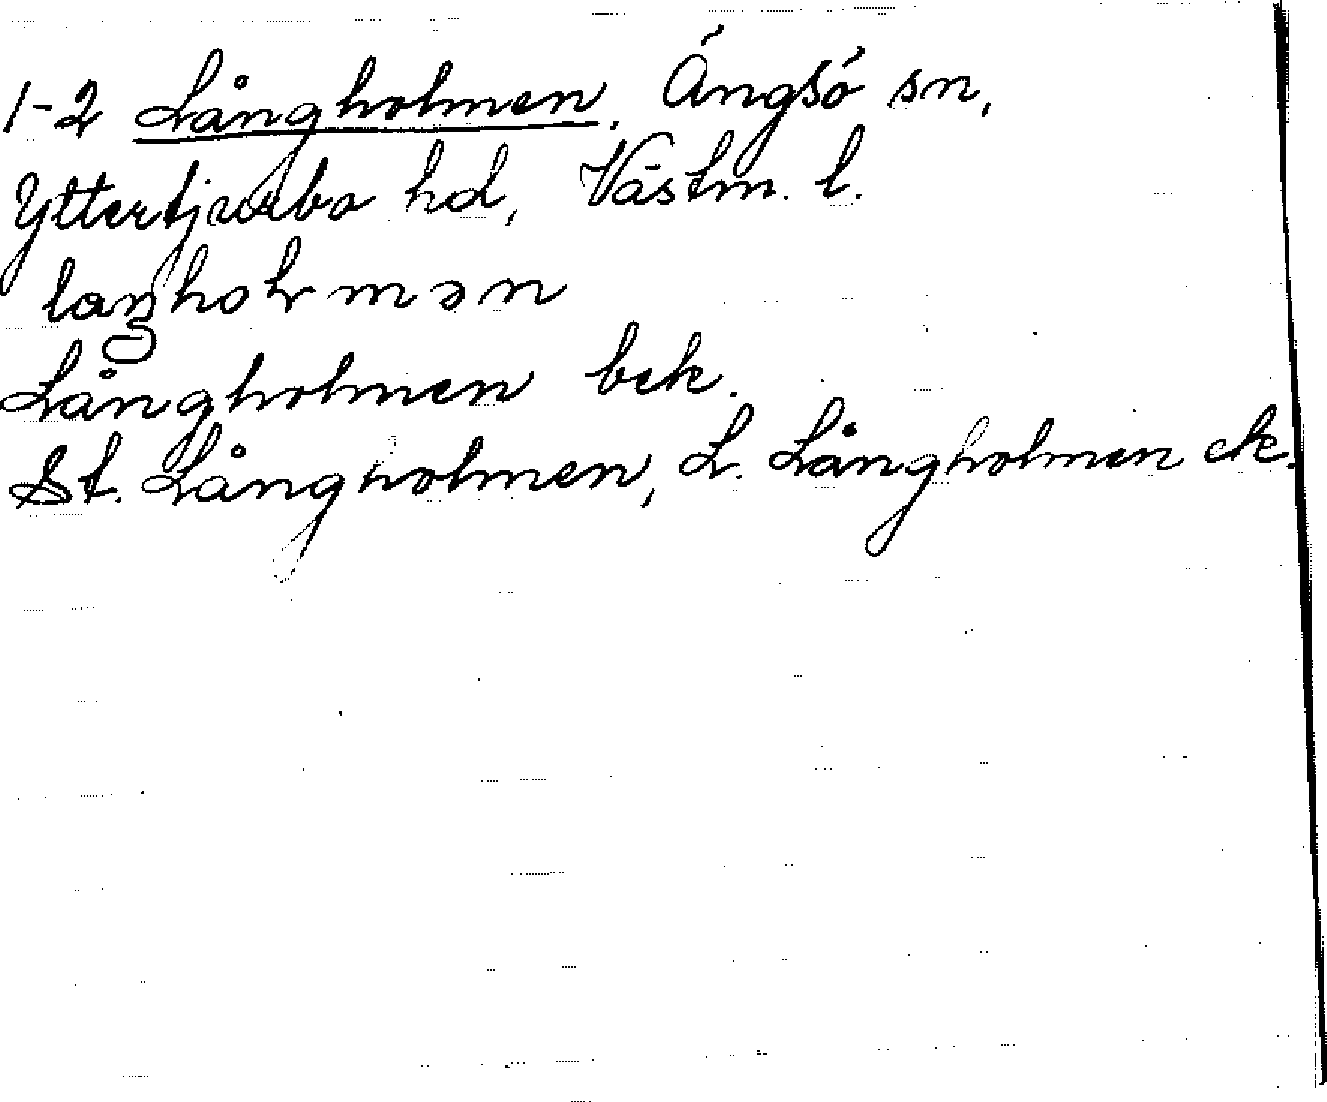 1-2 Långholmen. Ängsö sn,
Yttertjurbo hd, Västm. l.
Långholmen bek.
St. Långholmen, L. Långholmen ek.